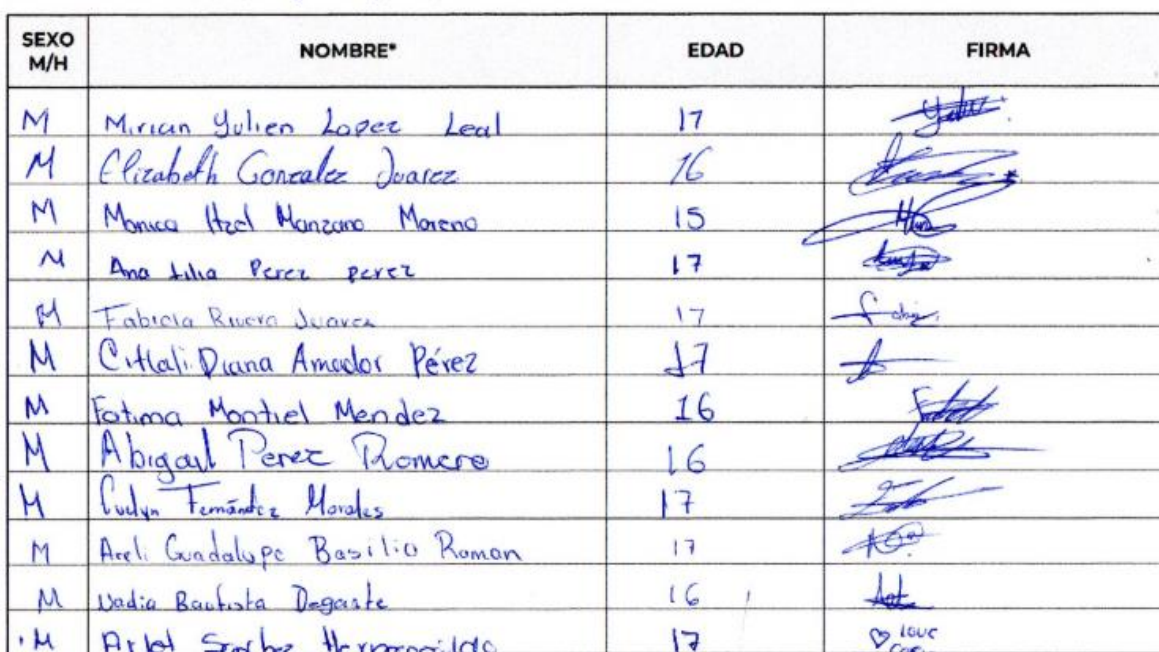 SEXO M/H NOMBRE* EDAD FIRMA
M Mirian Yulien Lopez Leal 17
M Elizabeth Gonzalez Juarez 16
M Monica Itzel Manzano Moreno 15
M Ana Lilia Perez perez 17
M Fabiola Rivera Juarez 17
M Citlali Diana Amador Pérez 17
M Fatima Montiel Mendez 16
M Abigail Perez Romero 16
M Evelyn Fernández Morales 17
M Areli Guadalupe Basilio Roman 17
M Nadia Bautista Degante 16
M Arlet 17 love